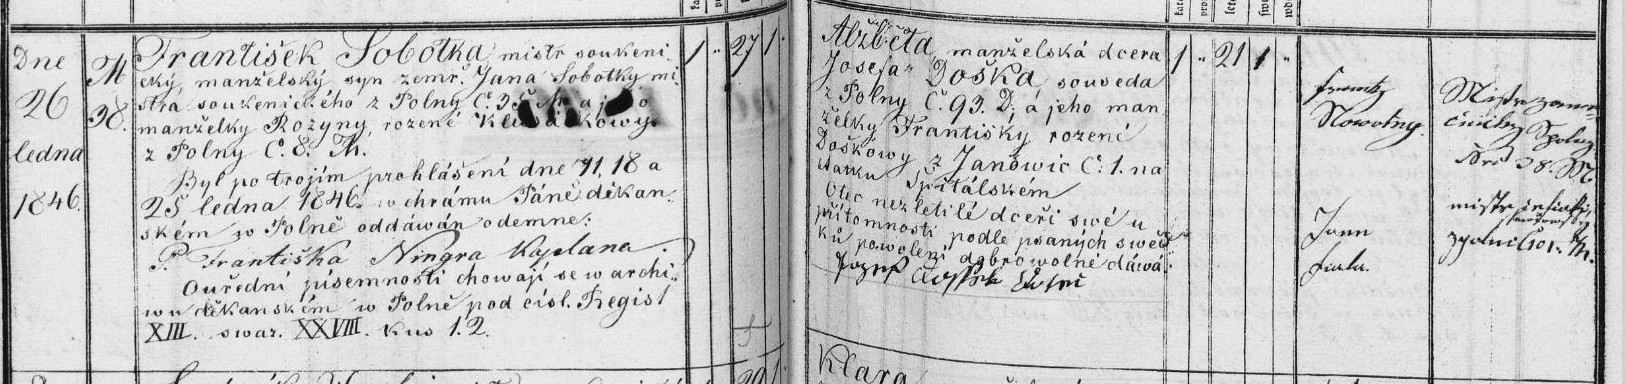 Dne
26
ledna
1846.
M
38.
František Sobotka mistr soukeni
cký, manželský syn zemř. Jana Sobotky mi
stra soukenického z Polny Č.
manželky Rozyny, rozené
z Polny Č. 8. M.
Byl po trojím prohlášení dne 11, 18 a
25 ledna 1846. w chrámu Páně děkan
ském w Polně oddáwán odemne:
P. Františka Ningra Kaplana.
Ouřední písemnosti chowají se w archi
wu děkanském w Polně pod čísl. Regist
XIII. swaz. XXVIII. kus 1.2.
1 " 27 1.
Alžběta manželská dcera
Josefa Doška, souseda
z Polny Č. 93. D. a jeho man
želky Františky rozené
Doškowy z Janowic Č. 1. na
statku Špitálském
Otec nezletilé dceři swé u
přítomnosti podle psaných swěd
ků powolení dobrowolné dáwá.
Jozef
1 " 21 1 "
Nowotny.
Mistr
38. M
Jann
Fiala.
mistr
Klara